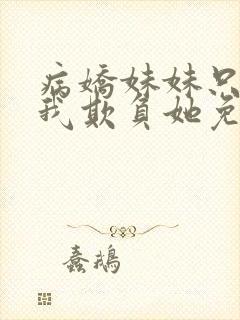 病嬌妹妹只
我欺負她免
蠢鵝